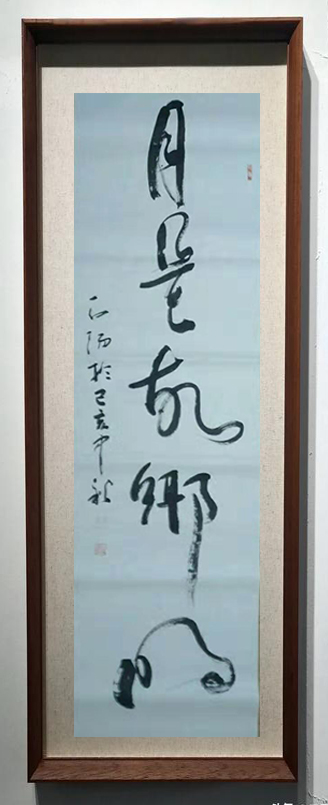 月是故乡明
石海於己亥中秋